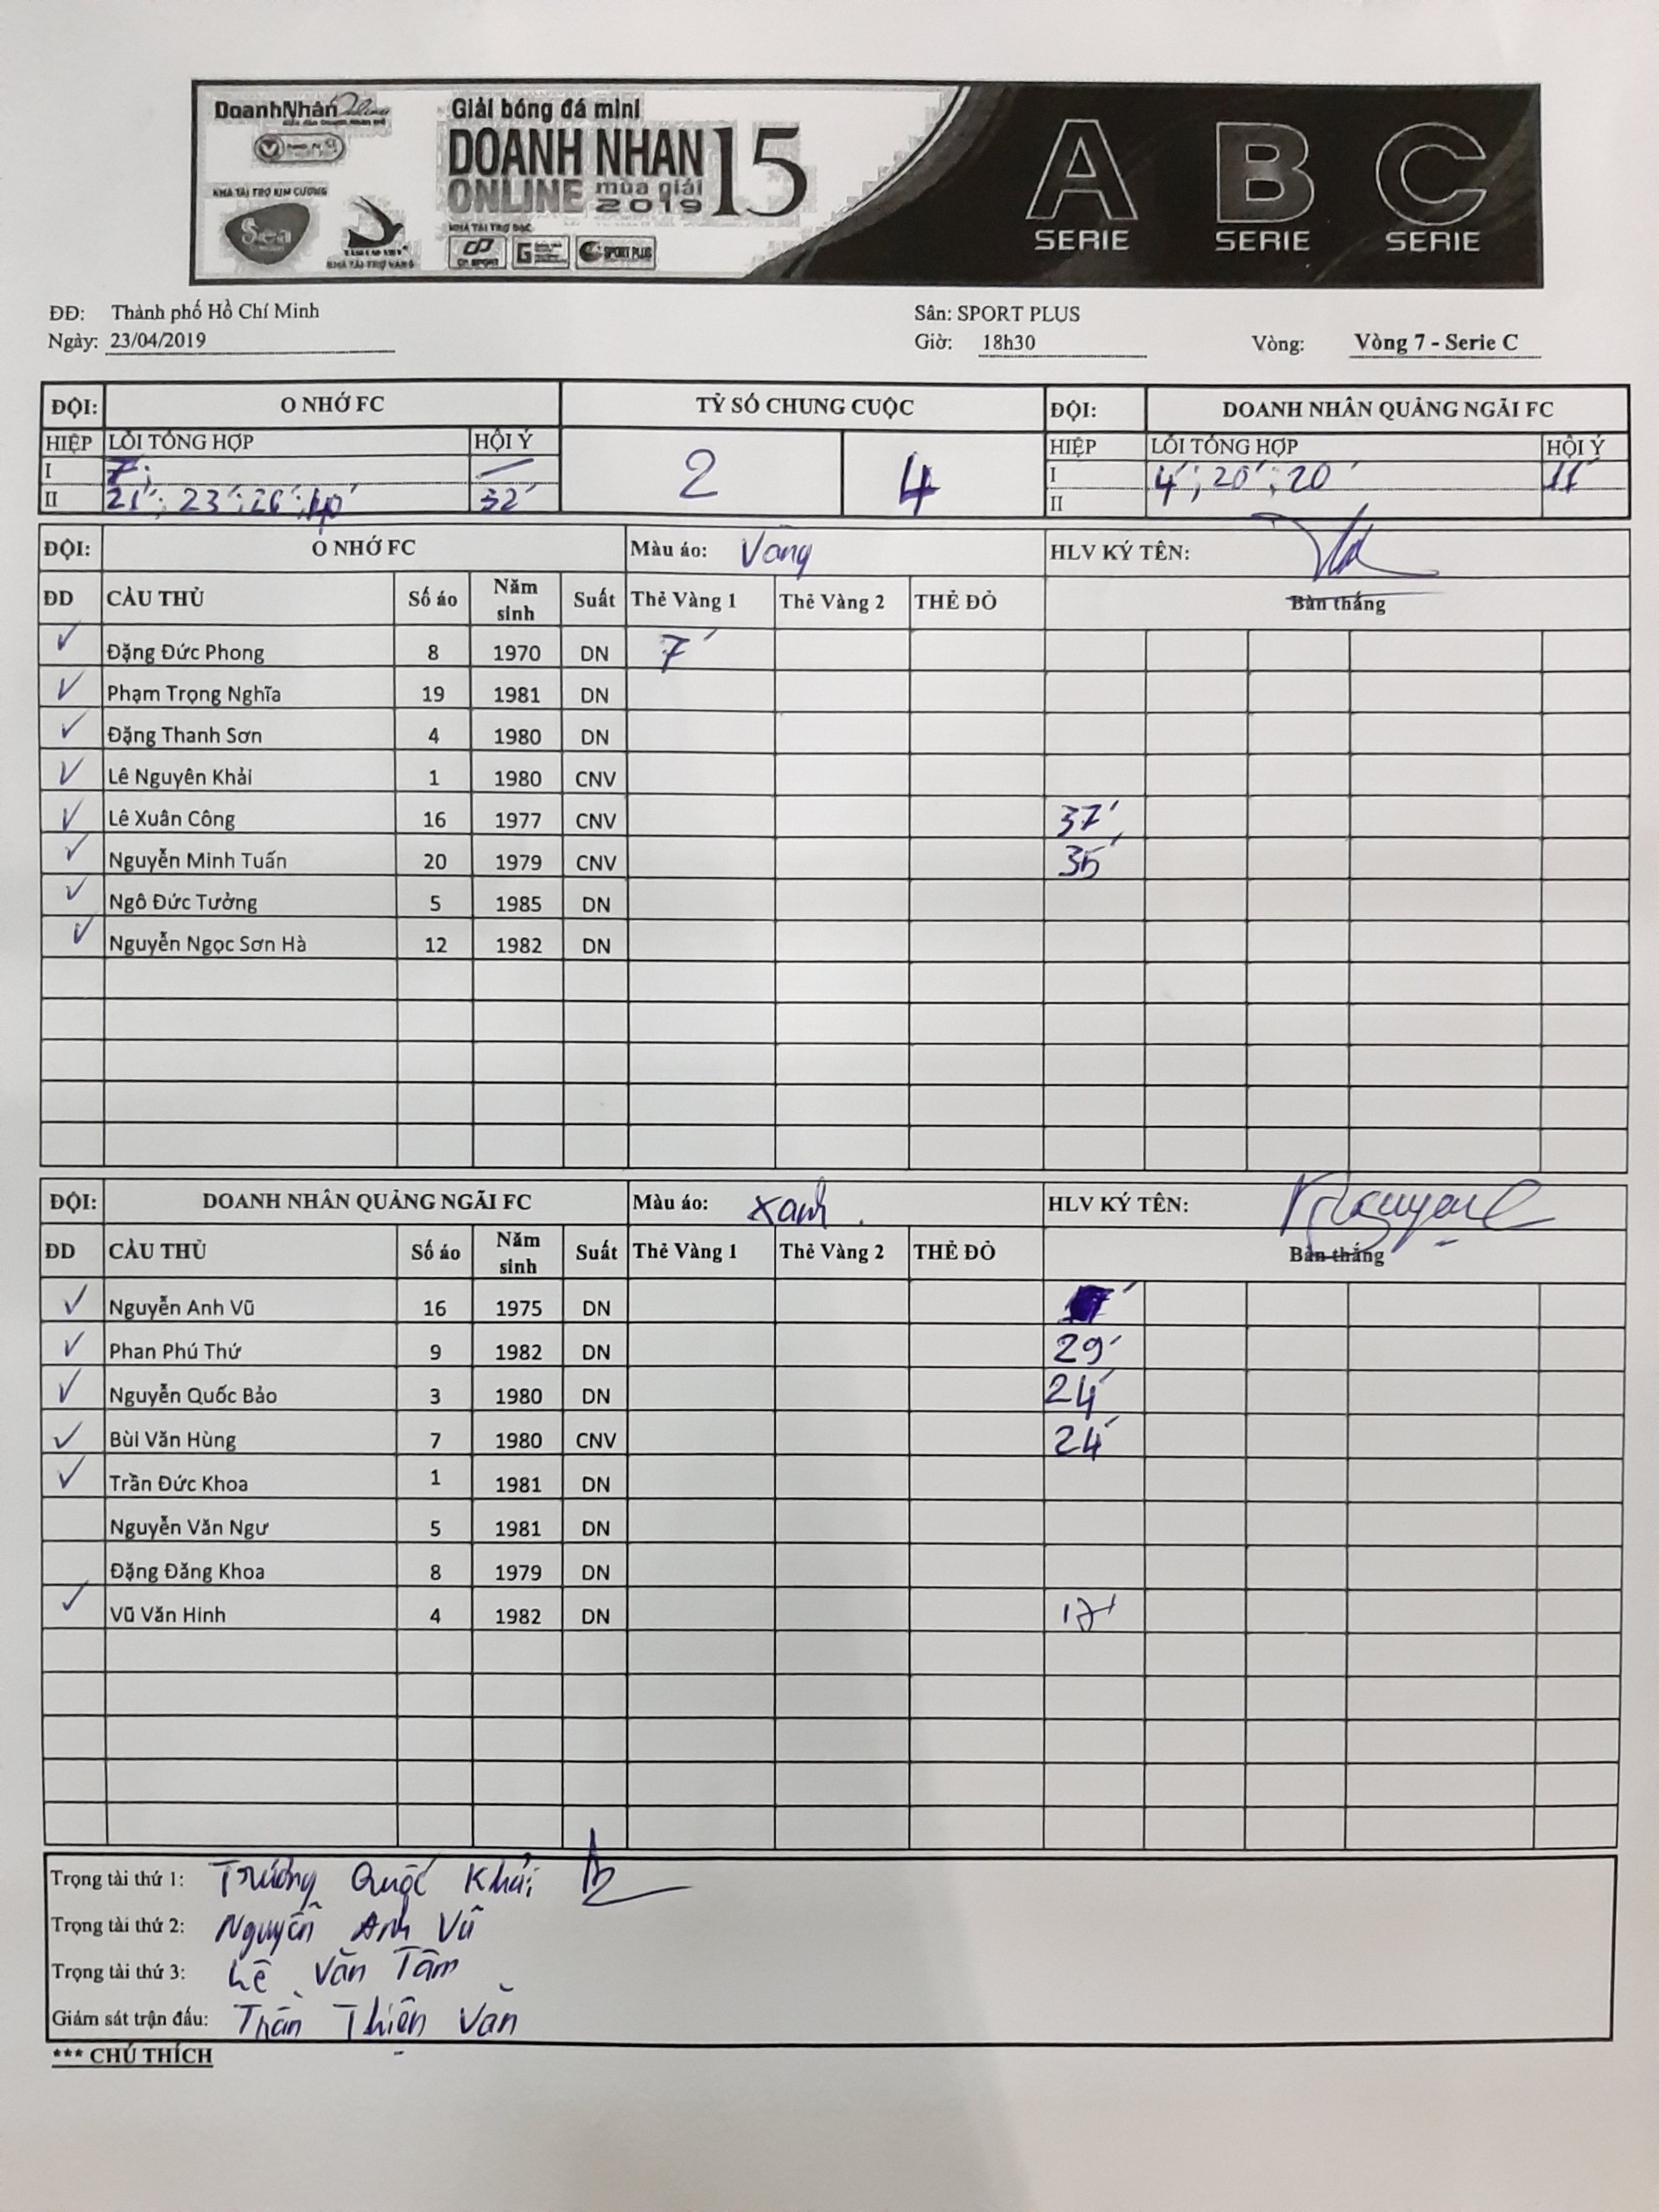 DoanhNhân
Giải bóng đá mini
DOANH NHAN 15
ONLINE mùa giải 2019
NHÀ TÀI TRỢ KIM CƯƠNG
Sea
NHÀ TÀI TRỢ VÀNG
NHÀ TÀI TRỢ BẠC
CP SPORT G SPORT PLUS
A SERIE B SERIE C SERIE
ĐĐ: Thành phố Hồ Chí Minh Sân: SPORT PLUS
Ngày: 23/04/2019 Giờ: 18h30 Vòng: Vòng 7 - Serie C
ĐỘI: O NHỚ FC TỶ SỐ CHUNG CUỘC ĐỘI: DOANH NHÂN QUẢNG NGÃI FC
HIỆP LỖI TỔNG HỢP HỘI Ý 2 4 HIỆP LỖI TỔNG HỢP HỘI Ý
I 7'; I 4'; 20'; 20' 11'
II 21'; 23'; 26'; 40' 32' II
ĐỘI: O NHỚ FC Màu áo: Vàng HLV KÝ TÊN:
ĐD CẦU THỦ Số áo Năm sinh Suất Thẻ Vàng 1 Thẻ Vàng 2 THẺ ĐỎ Bàn thắng
✓ Đặng Đức Phong 8 1970 DN 7'
✓ Phạm Trọng Nghĩa 19 1981 DN
✓ Đặng Thanh Sơn 4 1980 DN
✓ Lê Nguyên Khải 1 1980 CNV
✓ Lê Xuân Công 16 1977 CNV 37'
✓ Nguyễn Minh Tuấn 20 1979 CNV 35'
✓ Ngô Đức Tưởng 5 1985 DN
✓ Nguyễn Ngọc Sơn Hà 12 1982 DN
ĐỘI: DOANH NHÂN QUẢNG NGÃI FC Màu áo: Xanh HLV KÝ TÊN:
ĐD CẦU THỦ Số áo Năm sinh Suất Thẻ Vàng 1 Thẻ Vàng 2 THẺ ĐỎ Bàn thắng
✓ Nguyễn Anh Vũ 16 1975 DN
✓ Phan Phú Thứ 9 1982 DN 29'
✓ Nguyễn Quốc Bảo 3 1980 DN 24'
✓ Bùi Văn Hùng 7 1980 CNV 24'
✓ Trần Đức Khoa 1 1981 DN
Nguyễn Văn Ngư 5 1981 DN
Đặng Đăng Khoa 8 1979 DN
✓ Vũ Văn Hinh 4 1982 DN 17'
Trọng tài thứ 1: Trương Quốc Khải
Trọng tài thứ 2: Nguyễn Anh Vũ
Trọng tài thứ 3: Lê Văn Tâm
Giám sát trận đấu: Trần Thiện Văn
*** CHÚ THÍCH